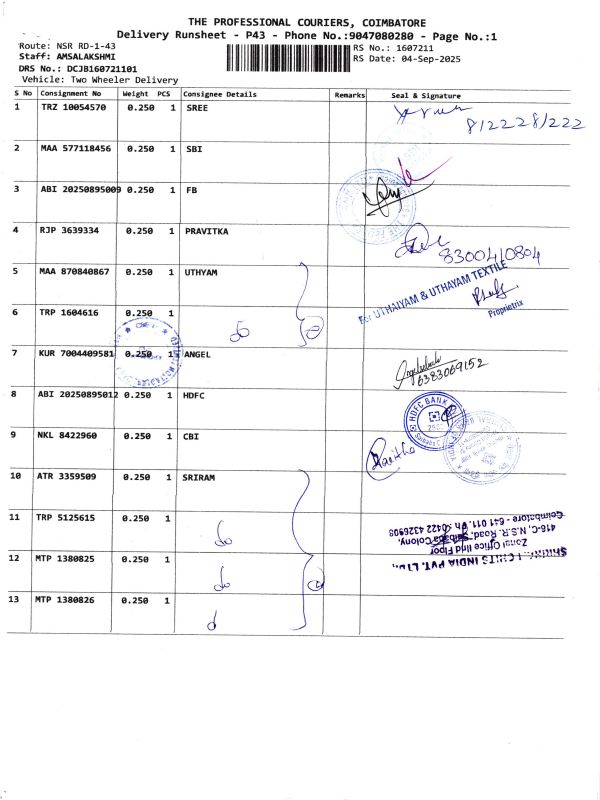 THE PROFESSIONAL COURIERS, COIMBATORE
Delivery Runsheet - P43 - Phone No.:9047080280 - Page No.:1
Route: NSR RD-1-43
RS No.: 1607211
Staff: AMSALAKSHMI
RS Date: 04-Sep-2025
DRS No.: DCJB160721101
Vehicle: Two Wheeler Delivery
S No Consignment No Weight PCS Consignee Details Remarks Seal & Signature
1 TRZ 10054570 0.250 1 SREE
8122281222
2 MAA 577118456 0.250 1 SBI
3 ABI 20250895009 0.250 1 FB
4 RJP 3639334 0.250 1 PRAVITKA
8300410804
5 MAA 870840867 0.250 1 UTHYAM
For UTHAIYAM & UTHAYAM TEXTILE
Proprietrix
6 TRP 1604616 0.250 1 do 2
7 KUR 7004409581 0.250 1 ANGEL
6383069152
8 ABI 20250895012 0.250 1 HDFC
HDFC BANK
9 NKL 8422960 0.250 1 CBI
10 ATR 3359509 0.250 1 SRIRAM
11 TRP 5125615 0.250 1 do
12 MTP 1380825 0.250 1 do
13 MTP 1380826 0.250 1
CHITS INDIA PVT. LTD.,
Zonal Office IIIrd Floor
416-C, N.S.R. Road, Saibaba Colony,
Coimbatore - 641 011. Ph : 0422 4326908